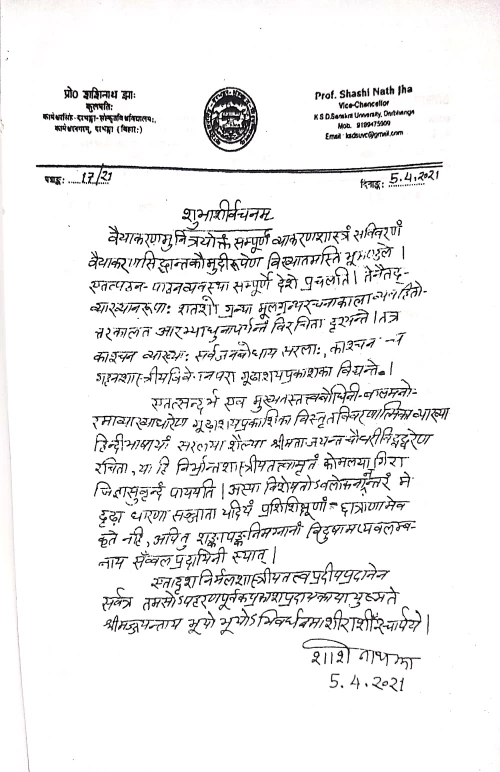 प्रो० शशिनाथ झाः
कुलपतिः
कामेश्वरसिंह-दरभङ्गा-संस्कृतविश्वविद्यालयः,
कामेश्वरनगरम्, दरभङ्गा (बिहारः)
Prof. Shashi Nath Jha
Vice-Chancellor
K S D.Sanskrit University, Darbhanga
Mob. 9199475909
Email : ksdsuvc@gmail.com
पत्राङ्कः 17/21
दिनाङ्कः 5.4.2021
शुभाशीर्वचनम्
वैयाकरणमुनित्रयोक्तं सम्पूर्णं व्याकरणशास्त्रं सविवरणं
वैयाकरणसिद्धान्तकौमुदीरूपेण विख्यातमस्ति भूमण्डले ।
एतत्पठन-पाठनव्यवस्था सम्पूर्णे देशे प्रचलति । तेनैतद्-
व्याख्यानरूपाः शतशो ग्रन्था मूलग्रन्थरचनाकालाव्यवहितो-
त्तरकालत आरभ्याधुनापर्यन्तं विरचिता दृश्यन्ते । तत्र
काश्चन व्याख्याः सर्वजनबोधाय सरलाः, काश्चन च
गहनशास्त्रीयविवेचनपरा गूढाशयप्रकाशका विद्यन्ते ।
एतत्सन्दर्भ एव मुख्यतस्तत्त्वबोधिनी-बालमनो-
रमाव्याख्याधारेण गूढाशयप्रकाशिका विस्तृतविवरणात्मिका व्याख्या
हिन्दीभाषायां सरलया शैल्या श्रीमता जयन्तचौधरीविद्वद्वरेण
रचिता, या हि निर्भ्रान्तशास्त्रीयतत्त्वामृतं कोमलया गिरा
जिज्ञासुवृन्दं पाययति । अस्या विशेषतोऽवलोकनानन्तरं मे
दृढा धारणा सञ्जाता यदियं प्रशिशिक्षूणां छात्राणामेव
कृते नहि, अपितु शङ्कापङ्कनिमग्नानां विदुषामप्यवलम्ब-
नाय सँव्वलप्रदायिनी स्यात् ।
एतादृशनिर्मलशास्त्रीयतत्त्वप्रदीपप्रदानेन
सर्वत्र तमसोऽपहरणपूर्वकप्रकाशप्रदायकायायुष्मते
श्रीमज्जयन्ताय भूयो भूयोऽभिवर्धनमाशीराशींश्चार्पये ।
शशिनाथ झा
5.4.2021